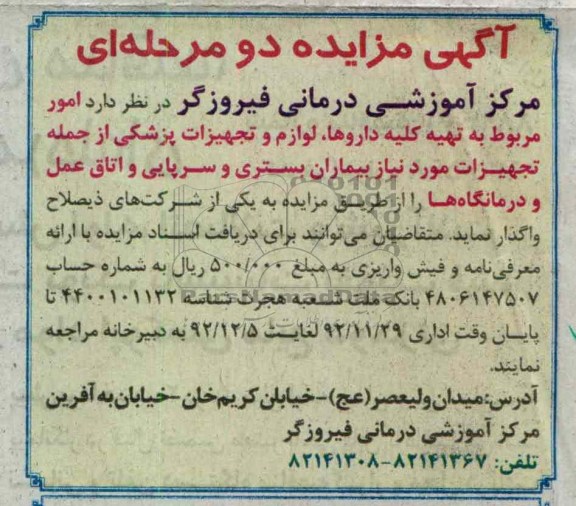 آگهی مزایده دو مرحله‌ای
مرکز آموزشی درمانی فیروزگر در نظر دارد امور
مربوط به تهیه کلیه داروها، لوازم و تجهیزات پزشکی از جمله
تجهیزات مورد نیاز بیماران بستری و سرپایی و اتاق عمل
و درمانگاه‌ها را از طریق مزایده به یکی از شرکت‌های ذیصلاح
واگذار نماید. متقاضیان می‌توانند برای دریافت اسناد مزایده با ارائه
معرفی‌نامه و فیش واریزی به مبلغ ۵۰۰/۰۰۰ ریال به شماره حساب
۴۸۰۶۱۴۷۵۰۷ بانک ملت شعبه هجرت شناسه ۴۴۰۰۱۰۱۱۳۲ تا
پایان وقت اداری ۹۲/۱۱/۲۹ لغایت ۹۲/۱۲/۵ به دبیرخانه مراجعه
نمایند.
آدرس:میدان ولیعصر(عج)-خیابان کریم‌خان-خیابان به آفرین
مرکز آموزشی درمانی فیروزگر
تلفن: ۸۲۱۴۱۳۶۷-۸۲۱۴۱۳۰۸